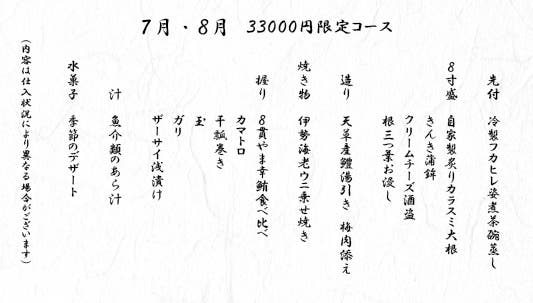 7月・8月 33000円限定コース
先付 冷製フカヒレ姿煮茶碗蒸し
8寸盛 自家製炙りカラスミ大根
きんき蒲鉾
クリームチーズ酒盗
根三つ葉お浸し
造り 天草産鱧湯引き 梅肉添え
焼き物 伊勢海老ウニ乗せ焼き
握り 8貫やま幸鮪食べ比べ
カマトロ
干瓢巻き
玉
ガリ
ザーサイ浅漬け
汁 魚介類のあら汁
水菓子 季節のデザート
(内容は仕入状況により異なる場合がございます)